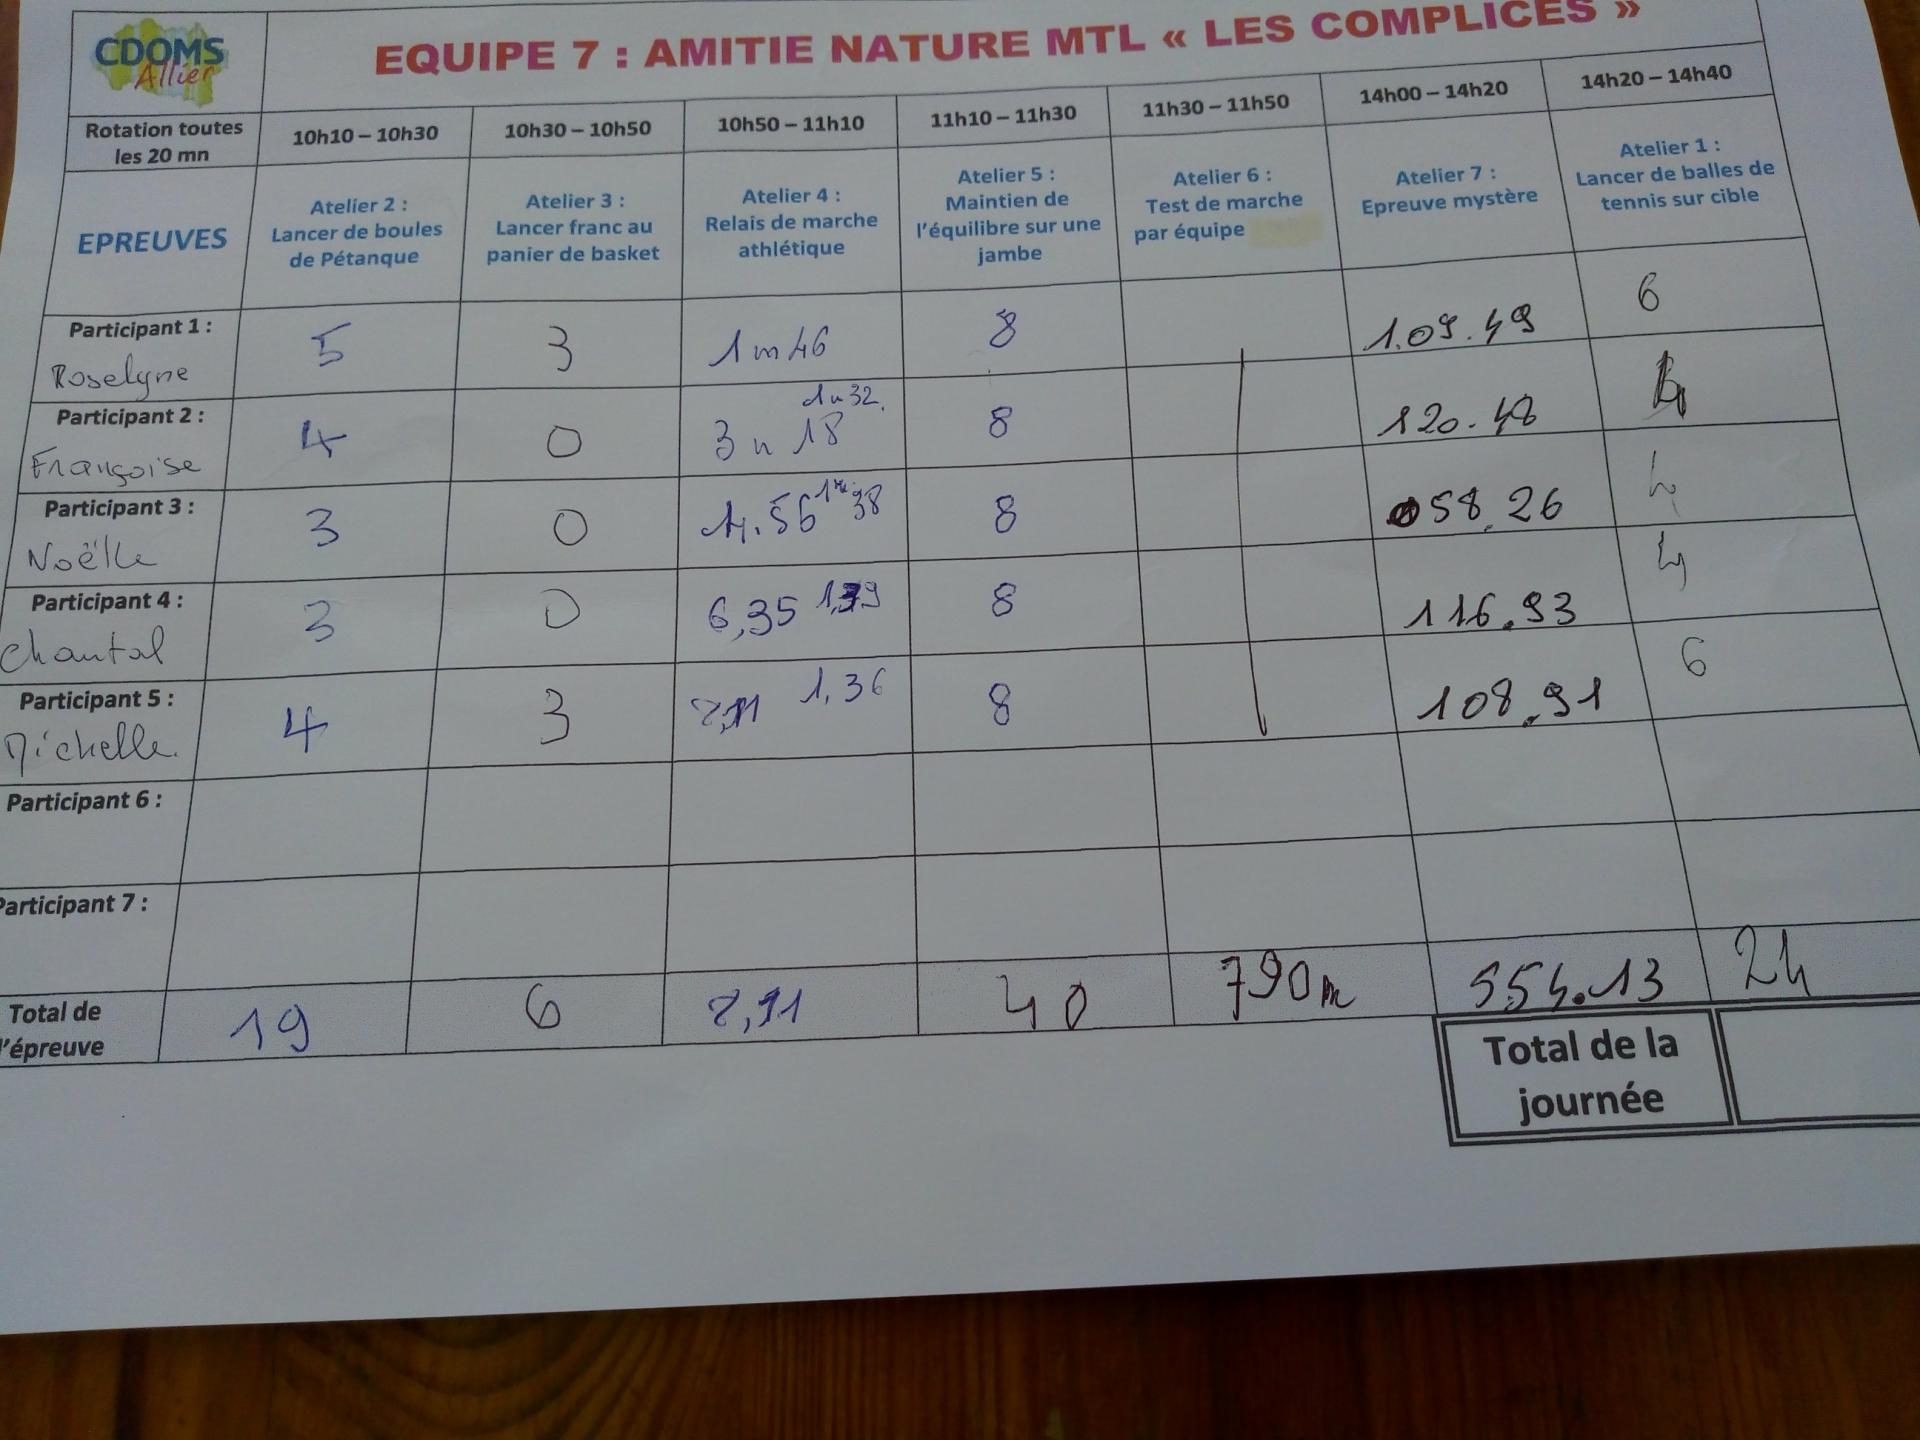 CDOMS
Allier
EQUIPE 7 : AMITIE NATURE MTL « LES COMPLICES »
Rotation toutes
les 20 mn
10h10 – 10h30
10h30 – 10h50
10h50 – 11h10
11h10 – 11h30
11h30 – 11h50
14h00 – 14h20
14h20 – 14h40
EPREUVES
Atelier 2 :
Lancer de boules
de Pétanque
Atelier 3 :
Lancer franc au
panier de basket
Atelier 4 :
Relais de marche
athlétique
Atelier 5 :
Maintien de
l'équilibre sur une
jambe
Atelier 6 :
Test de marche
par équipe
Atelier 7 :
Epreuve mystère
Atelier 1 :
Lancer de balles de
tennis sur cible
Participant 1 :
Roselyne
5
3
1m46
8
1.09.49
6
Participant 2 :
Françoise
4
0
1m32
3m18
8
120.48
4
Participant 3 :
Noëlle
3
0
4.56
38
8
58.26
4
Participant 4 :
Chantal
3
0
6,35
8
116.93
4
Participant 5 :
Michelle
4
3
1,36
8
108.91
6
Participant 6 :
Participant 7 :
Total de
l'épreuve
19
6
40
790m
554.13
24
Total de la
journée